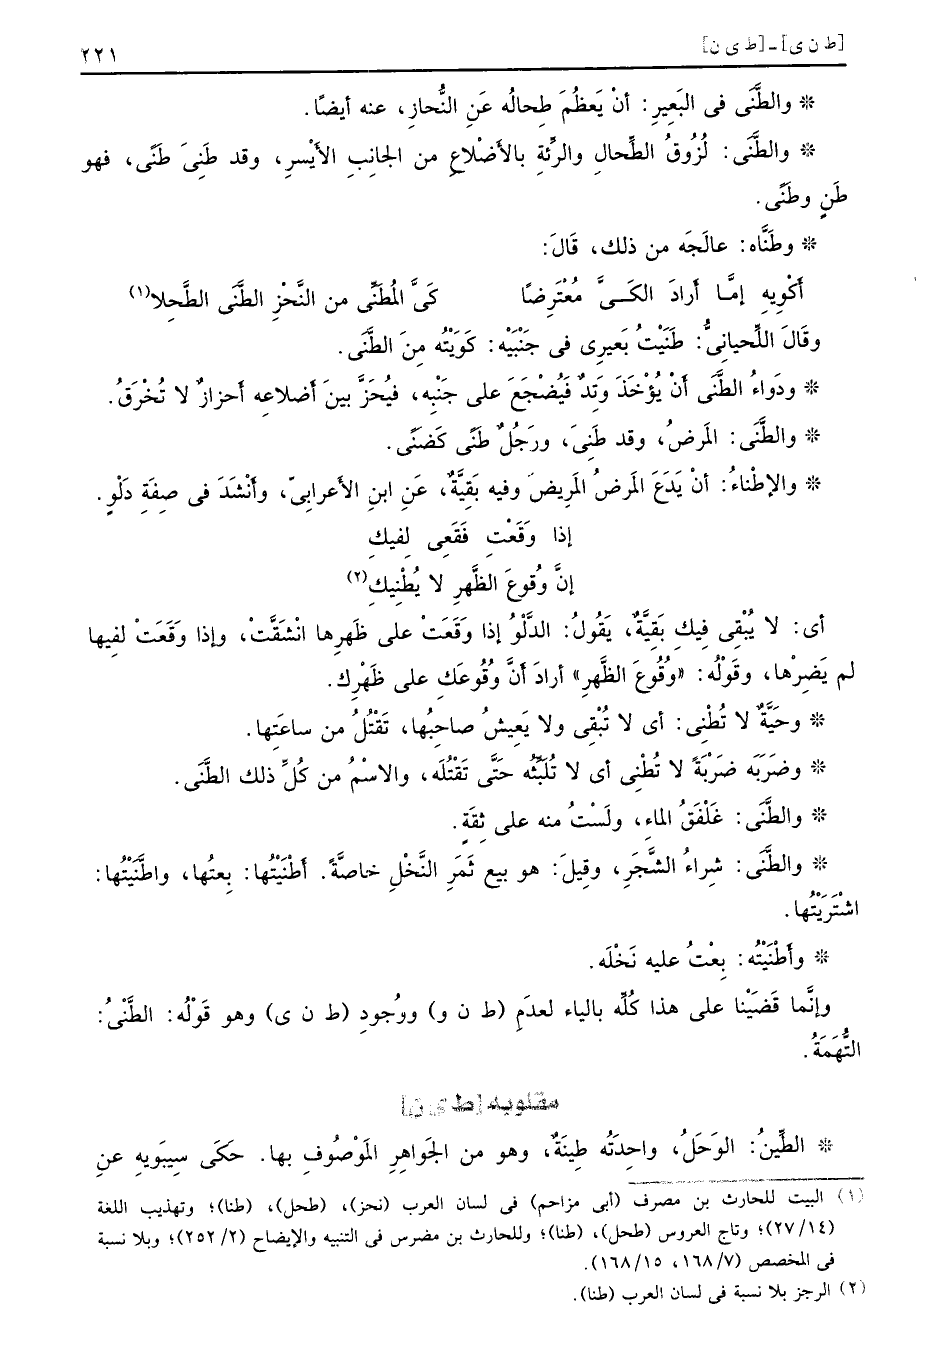 [ط ن ى] ـ [ط ى ن] ٢٢١
❊ والطَّنَى فى البَعيرِ: أنْ يَعظُمَ طحالُه عَنِ النُّحازِ، عنه أيضًا.
❊ والطَّنَى: لُزُوقُ الطِّحالِ والرِّئةِ بالأضْلاعِ من الجانبِ الأيْسرِ، وقد طَنِىَ طَنًى، فهو
طَنٍ وطَنًى.
❊ وطَنَّاه: عالَجَه من ذلك، قَالَ:
أكْوِيهِ إمَّا أرادَ الكَـىَّ مُعْتَرِضًا كَىَّ المُطَنِّى من النَّحْزِ الطَّنَى الطَّحلا(١)
وقَالَ اللِّحيانىُّ: طَنَيْتُ بَعيرِى فى جَنْبَيْه: كَوَيْتُه مِنَ الطَّنَى.
❊ ودَواءُ الطَّنَى أنْ يُؤْخَذَ وَتِدٌ فَيُضْجَعَ على جَنْبِه، فيُحَزَّ بينَ أضلاعِه أحزازٌ لا تُخْرَقُ.
❊ والطَّنَى: المَرضُ، وقد طَنِىَ، ورَجُلٌ طَنًى كَضَنًى.
❊ والإطْناءُ: أنْ يَدَعَ المَرضُ المَرِيضَ وفيه بَقِيَّةٌ، عَنِ ابنِ الأعرابىِّ، وأنْشَدَ فى صِفَةِ دَلْوٍ.
إذا وَقَعْتِ فَقَعِى لفِيكِ
إنَّ وُقوعَ الظَّهرِ لا يُطْنِيكِ(٢)
أى: لا يُبْقِى فِيكِ بَقِيَّةٌ، يَقُولُ: الدَّلْوُ إذا وَقَعَتْ على ظَهرِها انْشَقَّتْ، وإذا وَقَعَتْ لفِيها
لم يَضِرْها، وقَوْلُه: «وُقُوعَ الظَّهرِ» أرادَ أنَّ وُقُوعَكِ على ظَهْرِكِ.
❊ وحَيَّةٌ لا تُطْنِى: أى لا تُبْقِى ولا يَعِيشُ صاحبُها، تَقْتُلُ من ساعَتِها.
❊ وضرَبَه ضَرْبَةً لا تُطنِى أى لا تُلَبِّثُه حَتَّى تَقْتُلَه، والاسْمُ من كُلِّ ذلك الطَّنَى.
❊ والطَّنَى: غَلْفَقُ الماءِ، ولَسْتُ منه على ثِقَةٍ.
❊ والطَّنَى: شراءُ الشَّجَرِ، وقِيلَ: هو بيع ثَمَرِ النَّخْلِ خاصَّةً. أطْنَيْتُها: بِعتُها، واطَّنَيْتُها:
اشْتَرَيْتُها.
❊ وأطْنَيْتُه: بِعْتُ عليه نَخْلَه.
وإنَّما قَضَيْنا على هذا كُلِّه بالياء لعدَمِ (ط ن و) ووُجودِ (ط ن ى) وهو قَوْلُه: الطَّنْىُ:
التُّهَمَةُ.
مقلوبه [ط ى ن]
❊ الطِّينُ: الوَحَلُ، واحِدَتُه طِينَةٌ، وهو من الجَواهِرِ المَوْصُوفِ بها. حَكَى سِيبَويهِ عنِ
(١) البيت للحارث بن مصرف (أبى مزاحم) فى لسان العرب (نحز)، (طحل)، (طنا)؛ وتهذيب اللغة
(٢٧/١٤)؛ وتاج العروس (طحل)، (طنا)؛ وللحارث بن مضرس فى التنبيه والإيضاح (٢٥٢/٢)؛ وبلا نسبة
فى المخصص (١٦٨/٧، ١٦٨/١٥).
(٢) الرجز بلا نسبة فى لسان العرب (طنا).